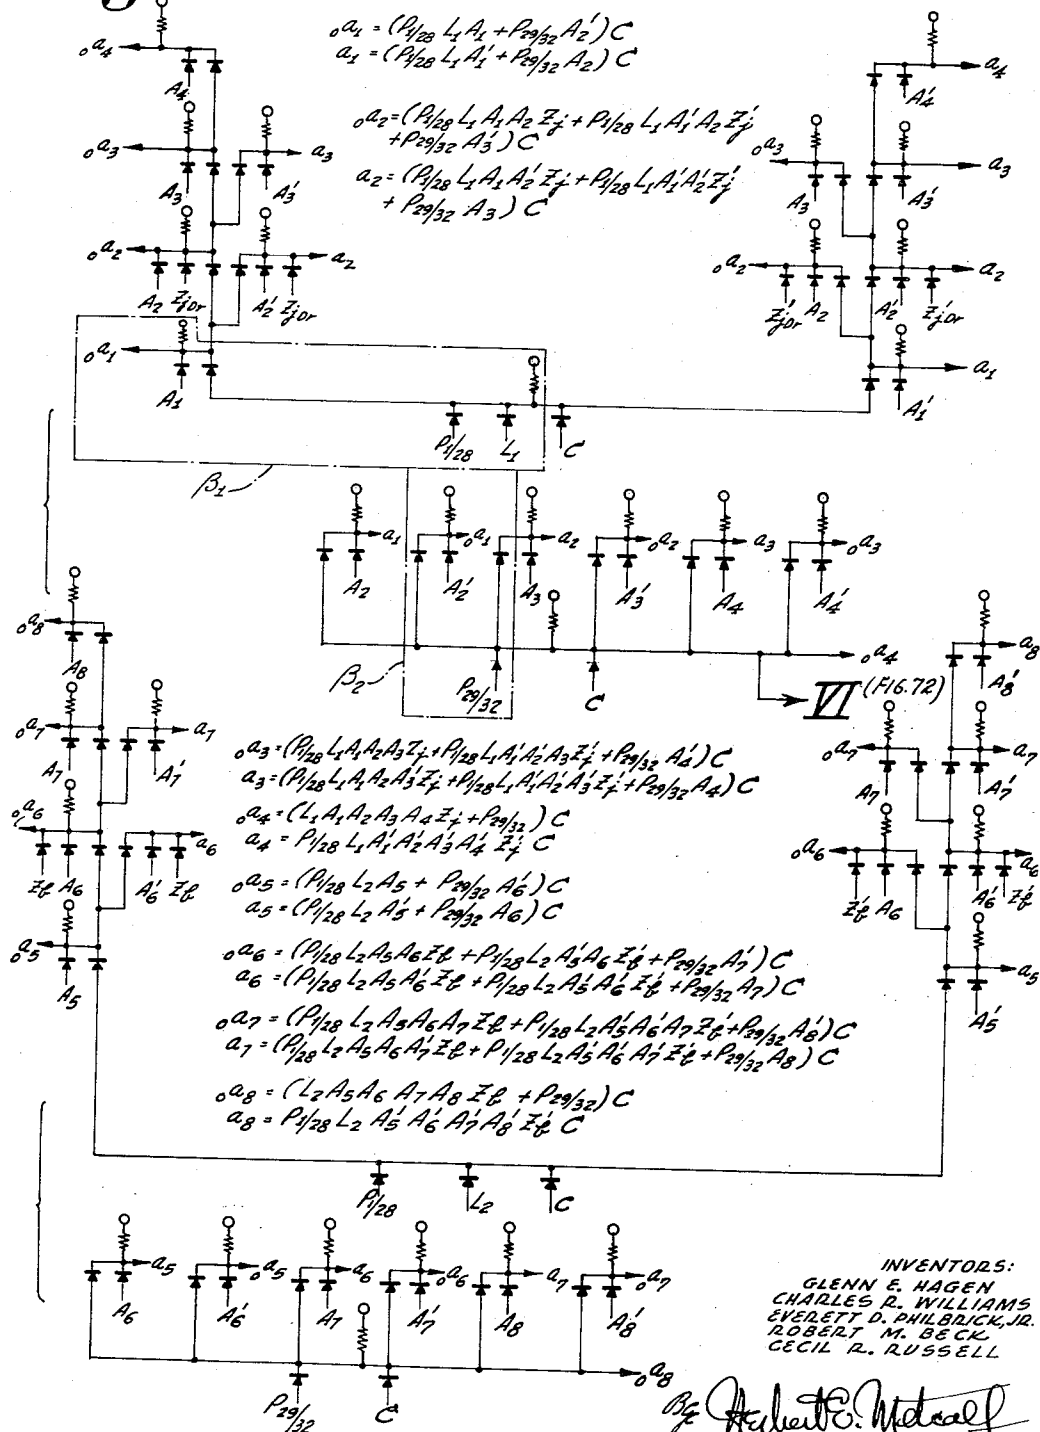 ₀a₁ = (P₁/₂₈ L₁ A₁ + P₂₉/₃₂ A₂′) C
a₁ = (P₁/₂₈ L₁ A₁′ + P₂₉/₃₂ A₂) C
₀a₂ = (P₁/₂₈ L₁ A₁ A₂ Zⱼ + P₁/₂₈ L₁ A₁′ A₂ Zⱼ′
+ P₂₉/₃₂ A₃′) C
a₂ = (P₁/₂₈ L₁ A₁ A₂′ Zⱼ + P₁/₂₈ L₁ A₁′ A₂′ Zⱼ′
+ P₂₉/₃₂ A₃) C
₀a₄
A₄
₀a₃ a₃
A₃ A₃′
₀a₂ a₂
A₂ Zⱼ₀ᵣ A₂′ Zⱼ₀ᵣ
₀a₁
A₁
a₄
A₄′
₀a₃ a₃
A₃ A₃′
₀a₂ a₂
Z′ⱼ₀ᵣ A₂ A₂′ Z′ⱼ₀ᵣ
a₁
A₁′
P₁/₂₈ L₁ C
β₁
a₁ ₀a₁ a₂ ₀a₂ a₃ ₀a₃
A₂ A₂′ A₃ A₃′ A₄ A₄′
₀a₄
β₂ P₂₉/₃₂ C VI (FIG. 72)
₀a₈
A₈
₀a₇ a₇
A₇ A₇′
₀a₆ a₆
Zk A₆ A₆′ Zk
₀a₅
A₅
a₈
A₈′
₀a₇ a₇
A₇ A₇′
₀a₆ a₆
Zk′ A₆ A₆′ Zk′
a₅
A₅′
₀a₃ = (P₁/₂₈ L₁ A₁ A₂ A₃ Zⱼ + P₁/₂₈ L₁ A₁′ A₂′ A₃ Zⱼ′ + P₂₉/₃₂ A₄′) C
a₃ = (P₁/₂₈ L₁ A₁ A₂ A₃′ Zⱼ + P₁/₂₈ L₁ A₁′ A₂′ A₃′ Zⱼ′ + P₂₉/₃₂ A₄) C
₀a₄ = (L₁ A₁ A₂ A₃ A₄ Zⱼ + P₂₉/₃₂) C
a₄ = P₁/₂₈ L₁ A₁′ A₂′ A₃′ A₄′ Zⱼ′ C
₀a₅ = (P₁/₂₈ L₂ A₅ + P₂₉/₃₂ A₆′) C
a₅ = (P₁/₂₈ L₂ A₅′ + P₂₉/₃₂ A₆) C
₀a₆ = (P₁/₂₈ L₂ A₅ A₆ Zk + P₁/₂₈ L₂ A₅′ A₆ Zk′ + P₂₉/₃₂ A₇′) C
a₆ = (P₁/₂₈ L₂ A₅ A₆′ Zk + P₁/₂₈ L₂ A₅′ A₆′ Zk′ + P₂₉/₃₂ A₇) C
₀a₇ = (P₁/₂₈ L₂ A₅ A₆ A₇ Zk + P₁/₂₈ L₂ A₅′ A₆′ A₇ Zk′ + P₂₉/₃₂ A₈′) C
a₇ = (P₁/₂₈ L₂ A₅ A₆ A₇′ Zk + P₁/₂₈ L₂ A₅′ A₆′ A₇′ Zk′ + P₂₉/₃₂ A₈) C
₀a₈ = (L₂ A₅ A₆ A₇ A₈ Zk + P₂₉/₃₂) C
a₈ = P₁/₂₈ L₂ A₅′ A₆′ A₇′ A₈′ Zk′ C
P₁/₂₈ L₂ C
a₅ ₀a₅ a₆ ₀a₆ a₇ ₀a₇
A₆ A₆′ A₇ A₇′ A₈ A₈′
₀a₈
P₂₉/₃₂ C
INVENTORS:
GLENN E. HAGEN
CHARLES R. WILLIAMS
EVERETT D. PHILBRICK, JR.
ROBERT M. BECK
CECIL R. RUSSELL
By Herbert E. Metcalf